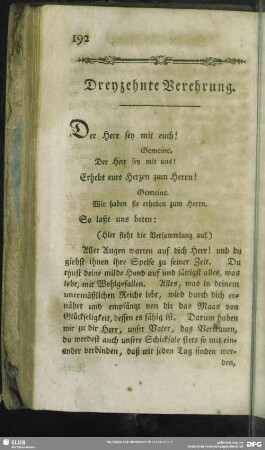 192
Dreyzehnte Verehrung.
Der Herr sey mit euch!
Gemeine.
Der Herr sey mit uns!
Erhebt eure Herzen zum Herrn!
Gemeine.
Wir haben sie erhoben zum Herrn.
So laßt uns beten:
(Hier steht die Versammlung auf.)
Aller Augen warten auf dich Herr! und du
giebst ihnen ihre Speise zu seiner Zeit. Du
thust deine milde Hand auf und sättigst alles, was
lebt, mit Wohlgefallen. Alles, was in deinem
unermäßlichen Reiche lebt, wird durch dich er-
nährt und empfängt von dir das Maas von
Glückseligkeit, dessen es fähig ist. Darum haben
wir zu dir Herr, unser Vater, das Vertrauen,
du werdest auch unsere Schicksale stets so mit ein-
ander verbinden, daß wir jeden Tag finden wer-
den,
SLUB
DFG